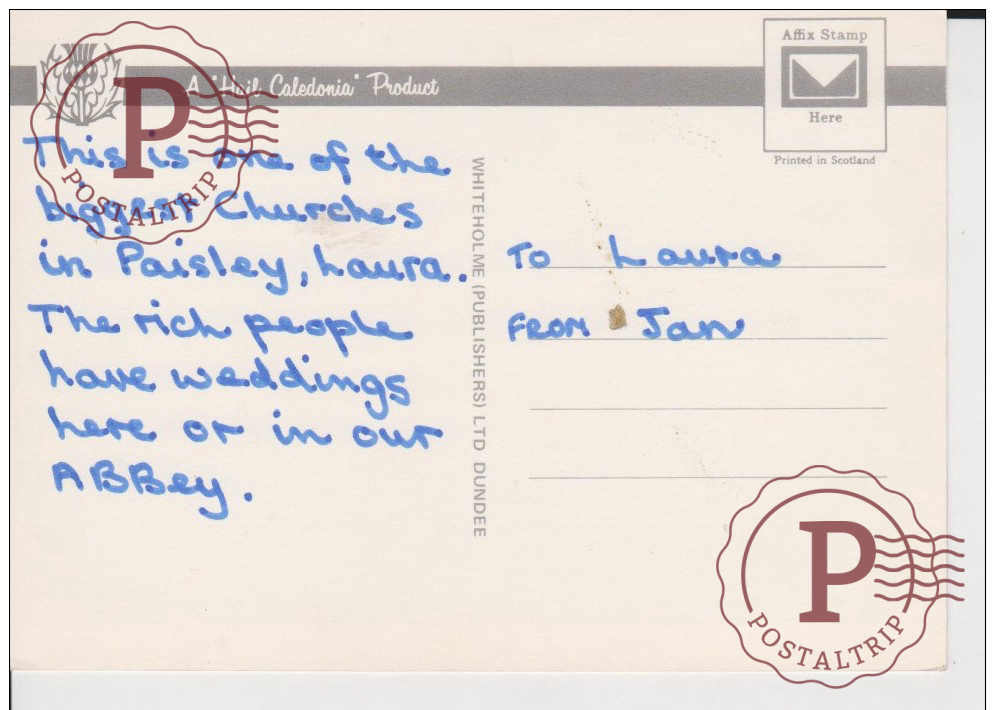 A "Hail Caledonia" Product
Affix Stamp
Here
Printed in Scotland
This is one of the
biggest Churches
in Paisley, Laura.
The rich people
have weddings
here or in our
ABBey.
WHITEHOLME (PUBLISHERS) LTD DUNDEE
To Laura
FROM Jan
P
POSTALTRIP
P
POSTALTRIP